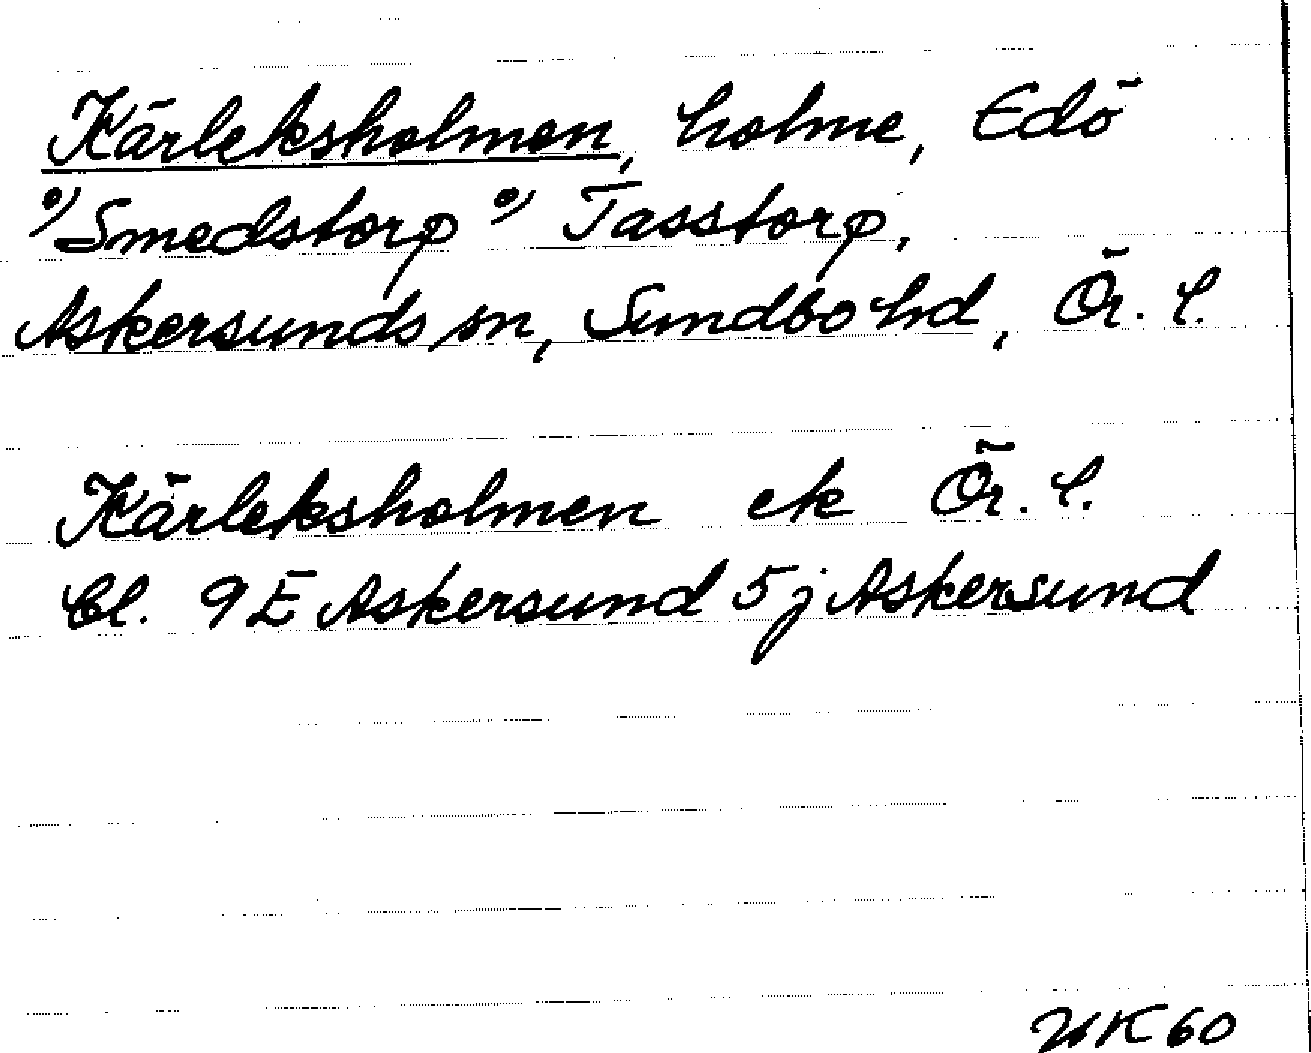 Kärleksholmen, holme, Edö
o/ Smedstorp o/ Tasstorp,
Askersunds sn, Sundbo hd, Ör. l.
Kärleksholmen ek Ör. l.
Bl. 9E Askersund 5j Askersund
UK 60